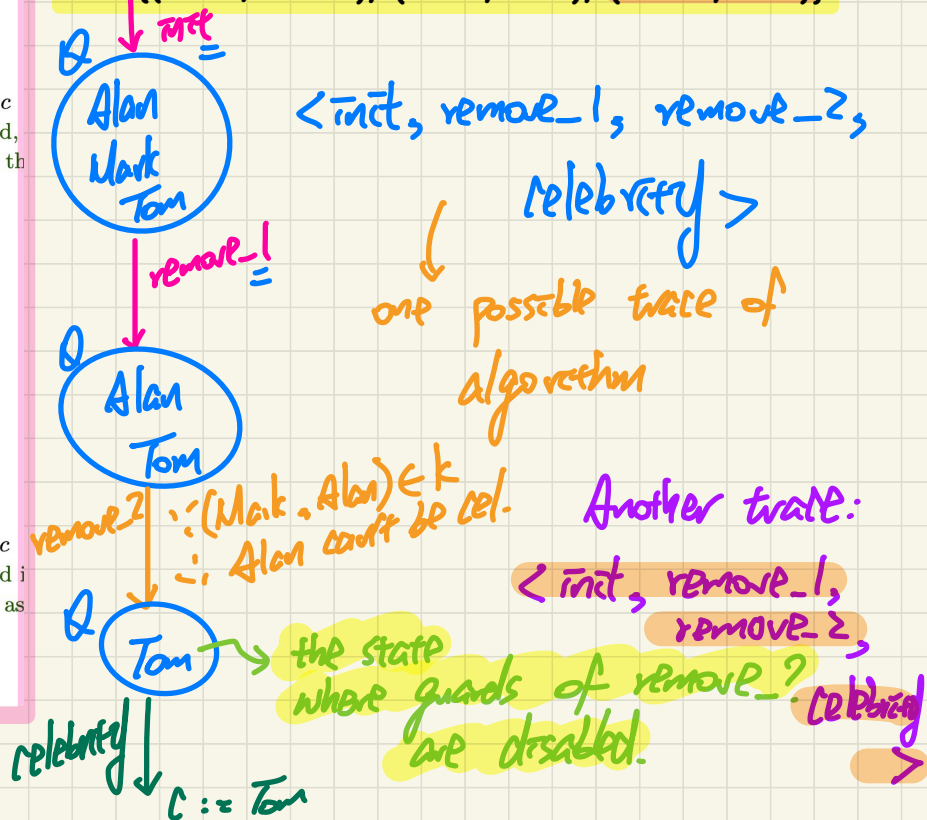 init
Q
Alan
Mark
Tom
<init, remove_1, remove_2,
celebrity>
c
d,
th
remove_1
one possible trace of
algorithm
Q
Alan
Tom
remove_2
∵ (Mark, Alan) ∈ k
∴ Alan can't be cel.
Another trace:
<init, remove_1,
remove_2,
celebrity
>
c
d i
as
Q
Tom
the state
where guards of remove_?
are disabled.
celebrity
C := Tom